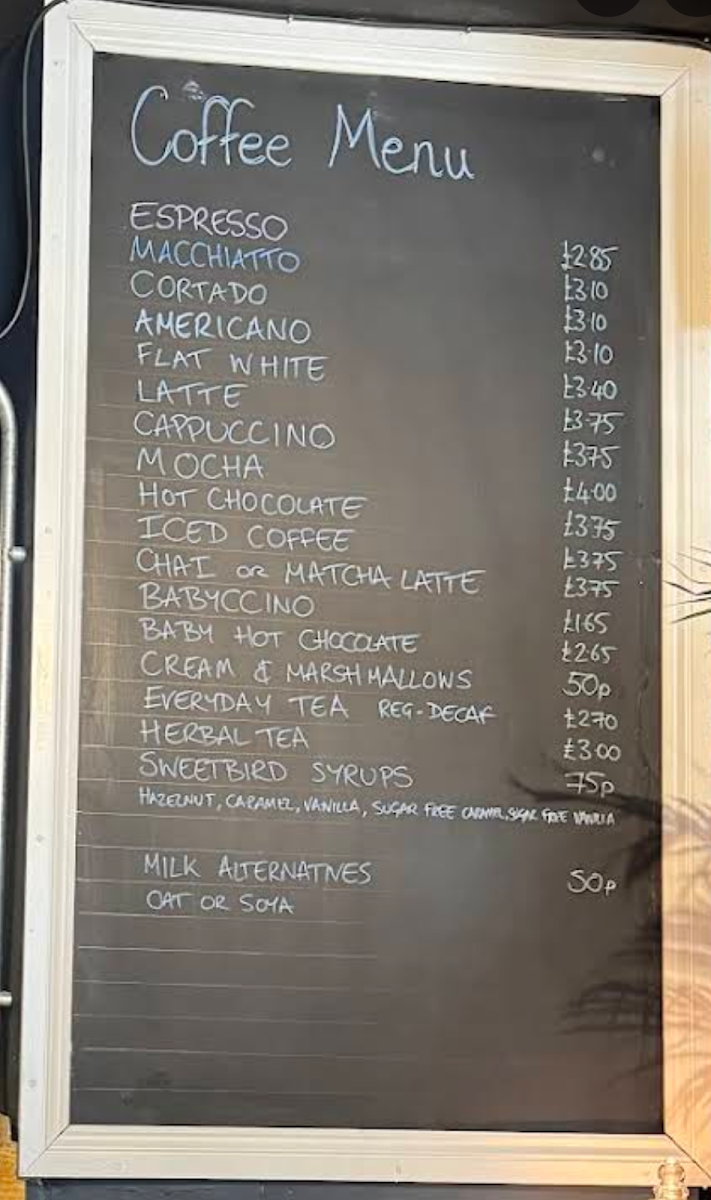 Coffee Menu
ESPRESSO £2.85
MACCHIATTO £3.10
CORTADO £3.10
AMERICANO £3.10
FLAT WHITE £3.40
LATTE £3.75
CAPPUCCINO £3.75
MOCHA £4.00
HOT CHOCOLATE £3.75
ICED COFFEE £3.75
CHAI OR MATCHA LATTE £3.75
BABYCCINO £1.65
BABY HOT CHOCOLATE £2.65
CREAM & MARSHMALLOWS 50p
EVERYDAY TEA REG-DECAF £2.70
HERBAL TEA £3.00
SWEETBIRD SYRUPS 75p
HAZELNUT, CARAMEL, VANILLA, SUGAR FREE CARAMEL, SUGAR FREE VANILLA
MILK ALTERNATIVES 50p
OAT OR SOYA